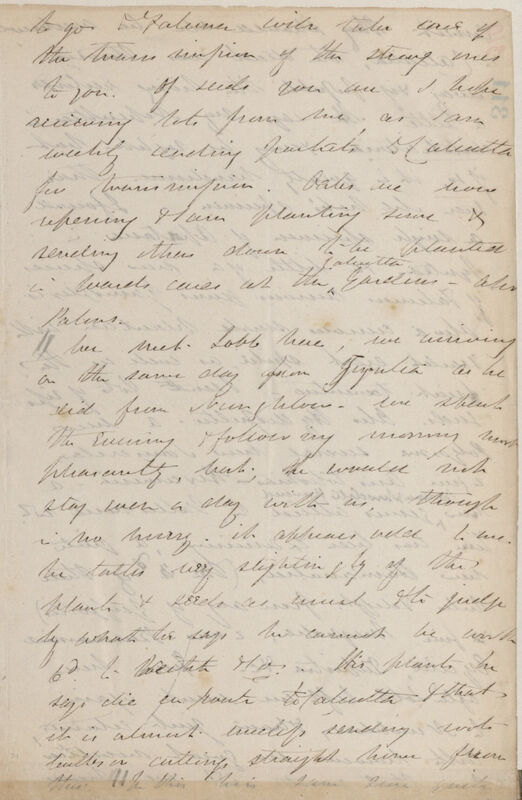 to go & Falconer will take care of
the transmission of the strong ones
to you. Of seeds you are I hope
receiving lots from me, as I am
weekly sending packets to Calcutta
for transmission. Oaks are now
ripening & I am planting some &
sending others down to be planted
in Wards cases at the Calcutta Gardens — also
Palms.
We met Lobb here, we arriving
on the same day from as he
did from Nunghlow. We spent
the Evening & following morning most
pleasantly, but, he would not
stay even a day with us, though
in no hurry. it appears odd to me.
he talks very slightingly of the
plants & seeds as must & to judge
by what he says he cannot be worth
6d. to Veitch & Co. His plants he
says die en route to Calcutta & that
it is almost useless sending roots
bulbs or cuttings straight home from
this.